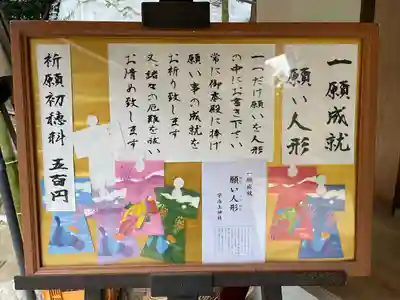 一願成就
願い人形
一つだけ願いを人形
の中にお書き下さい
常に御本殿に捧げ
願い事の成就を
お祈り致します
又、諸々の厄難を祓い
お清め致します
祈願初穂料 五百円
一願成就
願い人形
宇治上神社